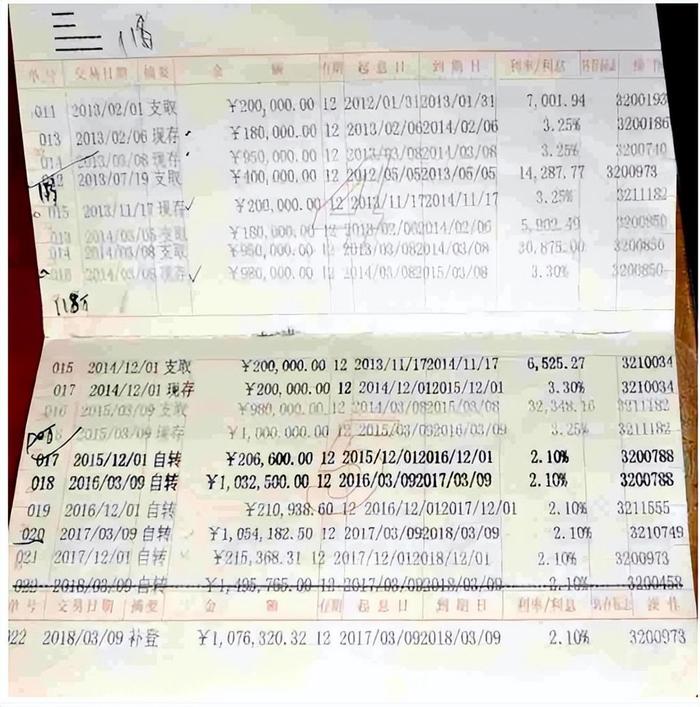 118
单号 交易日期 摘要 金 额 存期 起息日 到期日 利率/利息 操作
011 2013/02/01 支取 ￥200,000.00 12 2012/01/31 2013/01/31 7,001.94 3200193
013 2013/02/06 现存 ￥180,000.00 12 2013/02/06 2014/02/06 3.25% 3200186
014 2013/03/08 现存 ￥950,000.00 12 2013/03/08 2014/03/08 3.25% 3200740
012 2013/07/19 支取 ￥400,000.00 12 2012/05/05 2013/05/05 14,287.77 3200973
015 2013/11/17 现存 ￥200,000.00 12 2013/11/17 2014/11/17 3.25% 3211182
013 2014/03/08 支取 ￥180,000.00 12 2013/02/06 2014/02/06 5,902.49 3200850
014 2014/03/08 支取 ￥950,000.00 12 2013/03/08 2014/03/08 30,875.00 3200850
016 2014/03/08 现存 ￥980,000.00 12 2014/03/08 2015/03/08 3.30% 3200850
118万
015 2014/12/01 支取 ￥200,000.00 12 2013/11/17 2014/11/17 6,525.27 3210034
017 2014/12/01 现存 ￥200,000.00 12 2014/12/01 2015/12/01 3.30% 3210034
016 2015/03/09 支取 ￥980,000.00 12 2014/03/08 2015/03/08 32,348.16 3211182
2015/03/09 现存 ￥1,000,000.00 12 2015/03/09 2016/03/09 3.25% 3211182
017 2015/12/01 自转 ￥206,600.00 12 2015/12/01 2016/12/01 2.10% 3200788
018 2016/03/09 自转 ￥1,032,500.00 12 2016/03/09 2017/03/09 2.10% 3200788
019 2016/12/01 自转 ￥210,938.60 12 2016/12/01 2017/12/01 2.10% 3211555
020 2017/03/09 自转 ￥1,054,182.50 12 2017/03/09 2018/03/09 2.10% 3210749
021 2017/12/01 自转 ￥215,368.31 12 2017/12/01 2018/12/01 2.10% 3200973
022 2018/03/09 自转 ￥1,495,765.00 12 2017/03/09 2018/03/09 2.10% 3200458
单号 交易日期 摘要 金 额 存期 起息日 到期日 利率/利息 操作
022 2018/03/09 补登 ￥1,076,320.32 12 2017/03/09 2018/03/09 2.10% 3200973